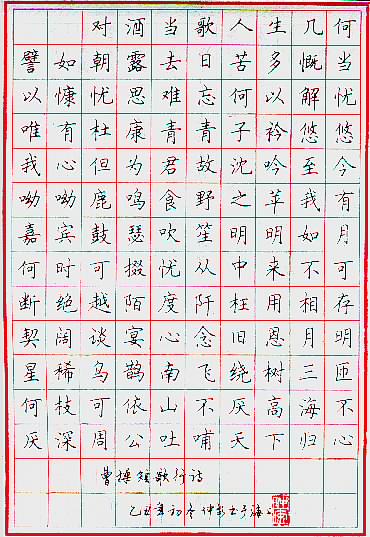 对酒当歌人生几何
譬如朝露去日苦多慨当
以慷忧思难忘何以解忧
唯有杜康青青子衿悠悠
我心但为君故沈吟至今
呦呦鹿鸣食野之苹我有
嘉宾鼓瑟吹笙明明如月
何时可掇忧从中来不可
断绝越陌度阡枉用相存
契阔谈宴心念旧恩月明
星稀乌鹊南飞绕树三匝
何枝可依山不厌高海不
厌深周公吐哺天下归心
曹操短歌行诗
乙丑年初冬仲书于海